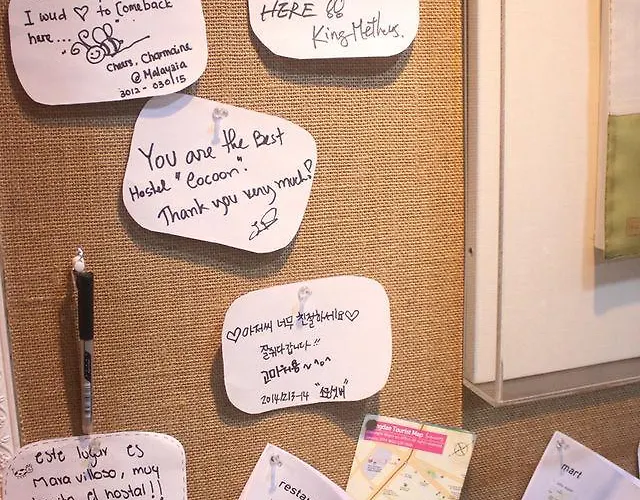 I wud ♡ to Comeback
here...
Cheers, Charmaine
@ Malaysia
3012 - 030115
HERE
King Metheus.
You are the Best
Hostel "Cocoon".
Thank you very much!
♡아저씨 너무 친절하세요♡
잘쉬다갑니다!!
고마워용~^o^
2014.12.13-14
este lugar es
Maravilloso, muy
el hostal!!
Tourist Map
resta
mart